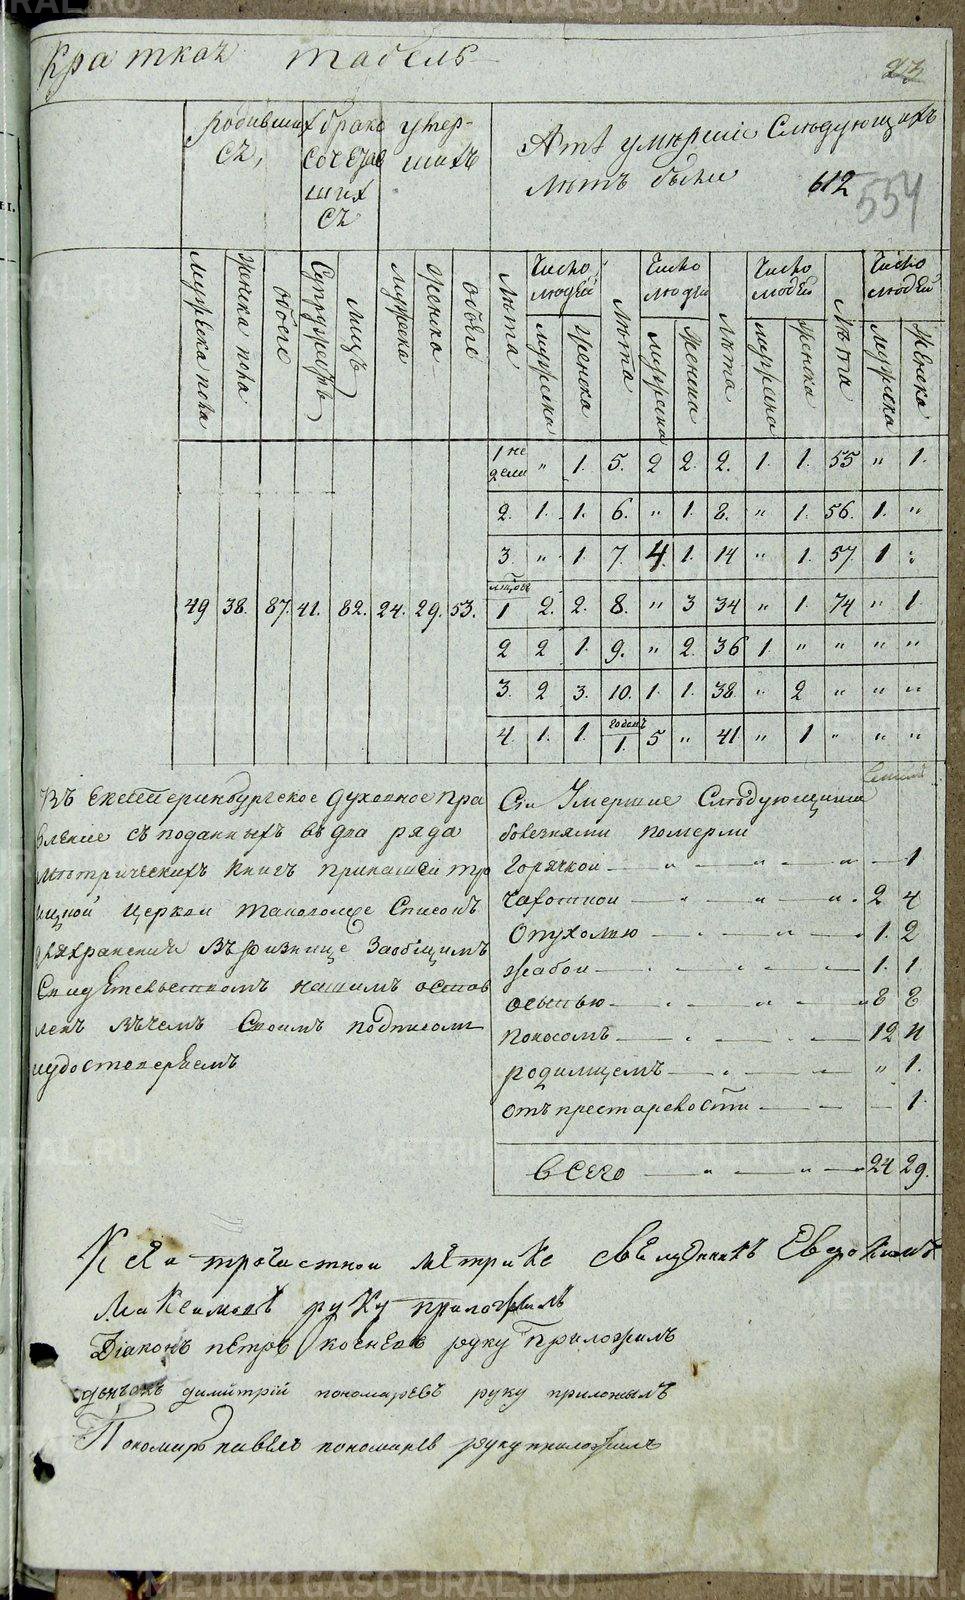 Краткая табель
23
родивших
ся,
брако
сочетав
ших
ся
умер-
шихъ
А тѣ умершіе Следующихъ
лѣтъ были
612
554
Мужеска пола
Женска пола
обоего
Супружествъ
лицъ
мужеска
женска
обоего
Лѣта
Число людей
мужеска
женска
Лѣта
Число людей
мужеска
женска
Лѣта
Число людей
мужеска
женска
Лѣта
Число людей
мужеска
женска
1 не
дели " 1. 5. 2 2. 2. 1. 1. 55 " 1.
2. 1. 1. 6. " 1. 8. " 1. 56. 1. "
3. " 1. 7. 4. 1. 14 " 1. 57. 1 "
49 38. 87. 41. 82. 24. 29. 53. 1 2. 2. 8. " 3 34 " 1. 74 " 1.
2 2 1. 9. " 2. 36 1. " " " "
3. 2 3. 10. 1. 1. 38 " 2 " " "
4. 1. 1. 1. 5 " 41. " 1 " " "
Въ Екатеринбургское духовное пра
вление съ поданныхъ въ два ряда
метрическихъ книгъ при нашей тро
ицкой церкви таковомже Списокъ
для храненія въ ризнице За общимъ
Свидетельствомъ нашимъ остав
ленъ въ чемъ Своимъ подписом
и удостоверяемъ
Си Умершие Следующими
болезнями померли
Горячкой — " — " — 1
Чахоткой — " — " . 2 4
Опухолью — " — 1. 2
Жабои — — 1. 1
осыпью — " — " 8 8
Поносомъ — . — 12 11
родимцемъ — . — " 1.
отъ престарелости — — 1.
Всего — " — " — 24 29.
К сей трочастной метрике Священникъ Евдокимъ
Максимовъ руку приложилъ
Діаконъ петръ руку Приложилъ
дьячокъ димитрій пономаревъ руку приложилъ
Пономарь павелъ пономарев руку приложилъ
METRIKI.GASO-URAL.RU